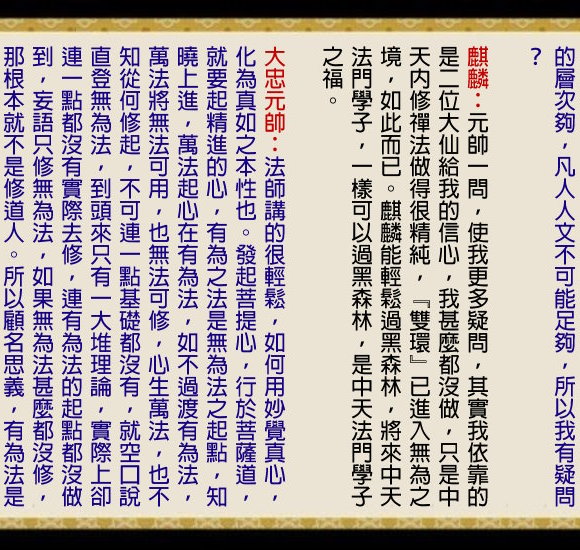 的層次夠，凡人人文不可能足夠，所以我有疑問
？
麒麟：元帥一問，使我更多疑問，其實我依靠的
是二位大仙給我的信心，我甚麼都沒做，只是中
天內修禪法做得很精純，『雙環』已進入無為之
境，如此而已。麒麟能輕鬆過黑森林，將來中天
法門學子，一樣可以過黑森林，是中天法門學子
之福。
大忠元帥：法師講的很輕鬆，如何用妙覺真心，
化為真如之本性也。發起菩提心，行於菩薩道，
就要起精進的心，有為之法是無為法之起點，知
曉上進，萬法起心在有為法，如不過渡有為法，
萬法將無法可用，也無法可修，心生萬法，也不
知從何修起，不可連一點基礎都沒有，就空口說
直登無為法，到頭來只有一大堆理論，實際上卻
連一點都沒有實際去修，連有為法的起點都沒做
到，妄語只修無為法，如果無為法甚麼都沒修，
那根本就不是修道人。所以顧名思義，有為法是